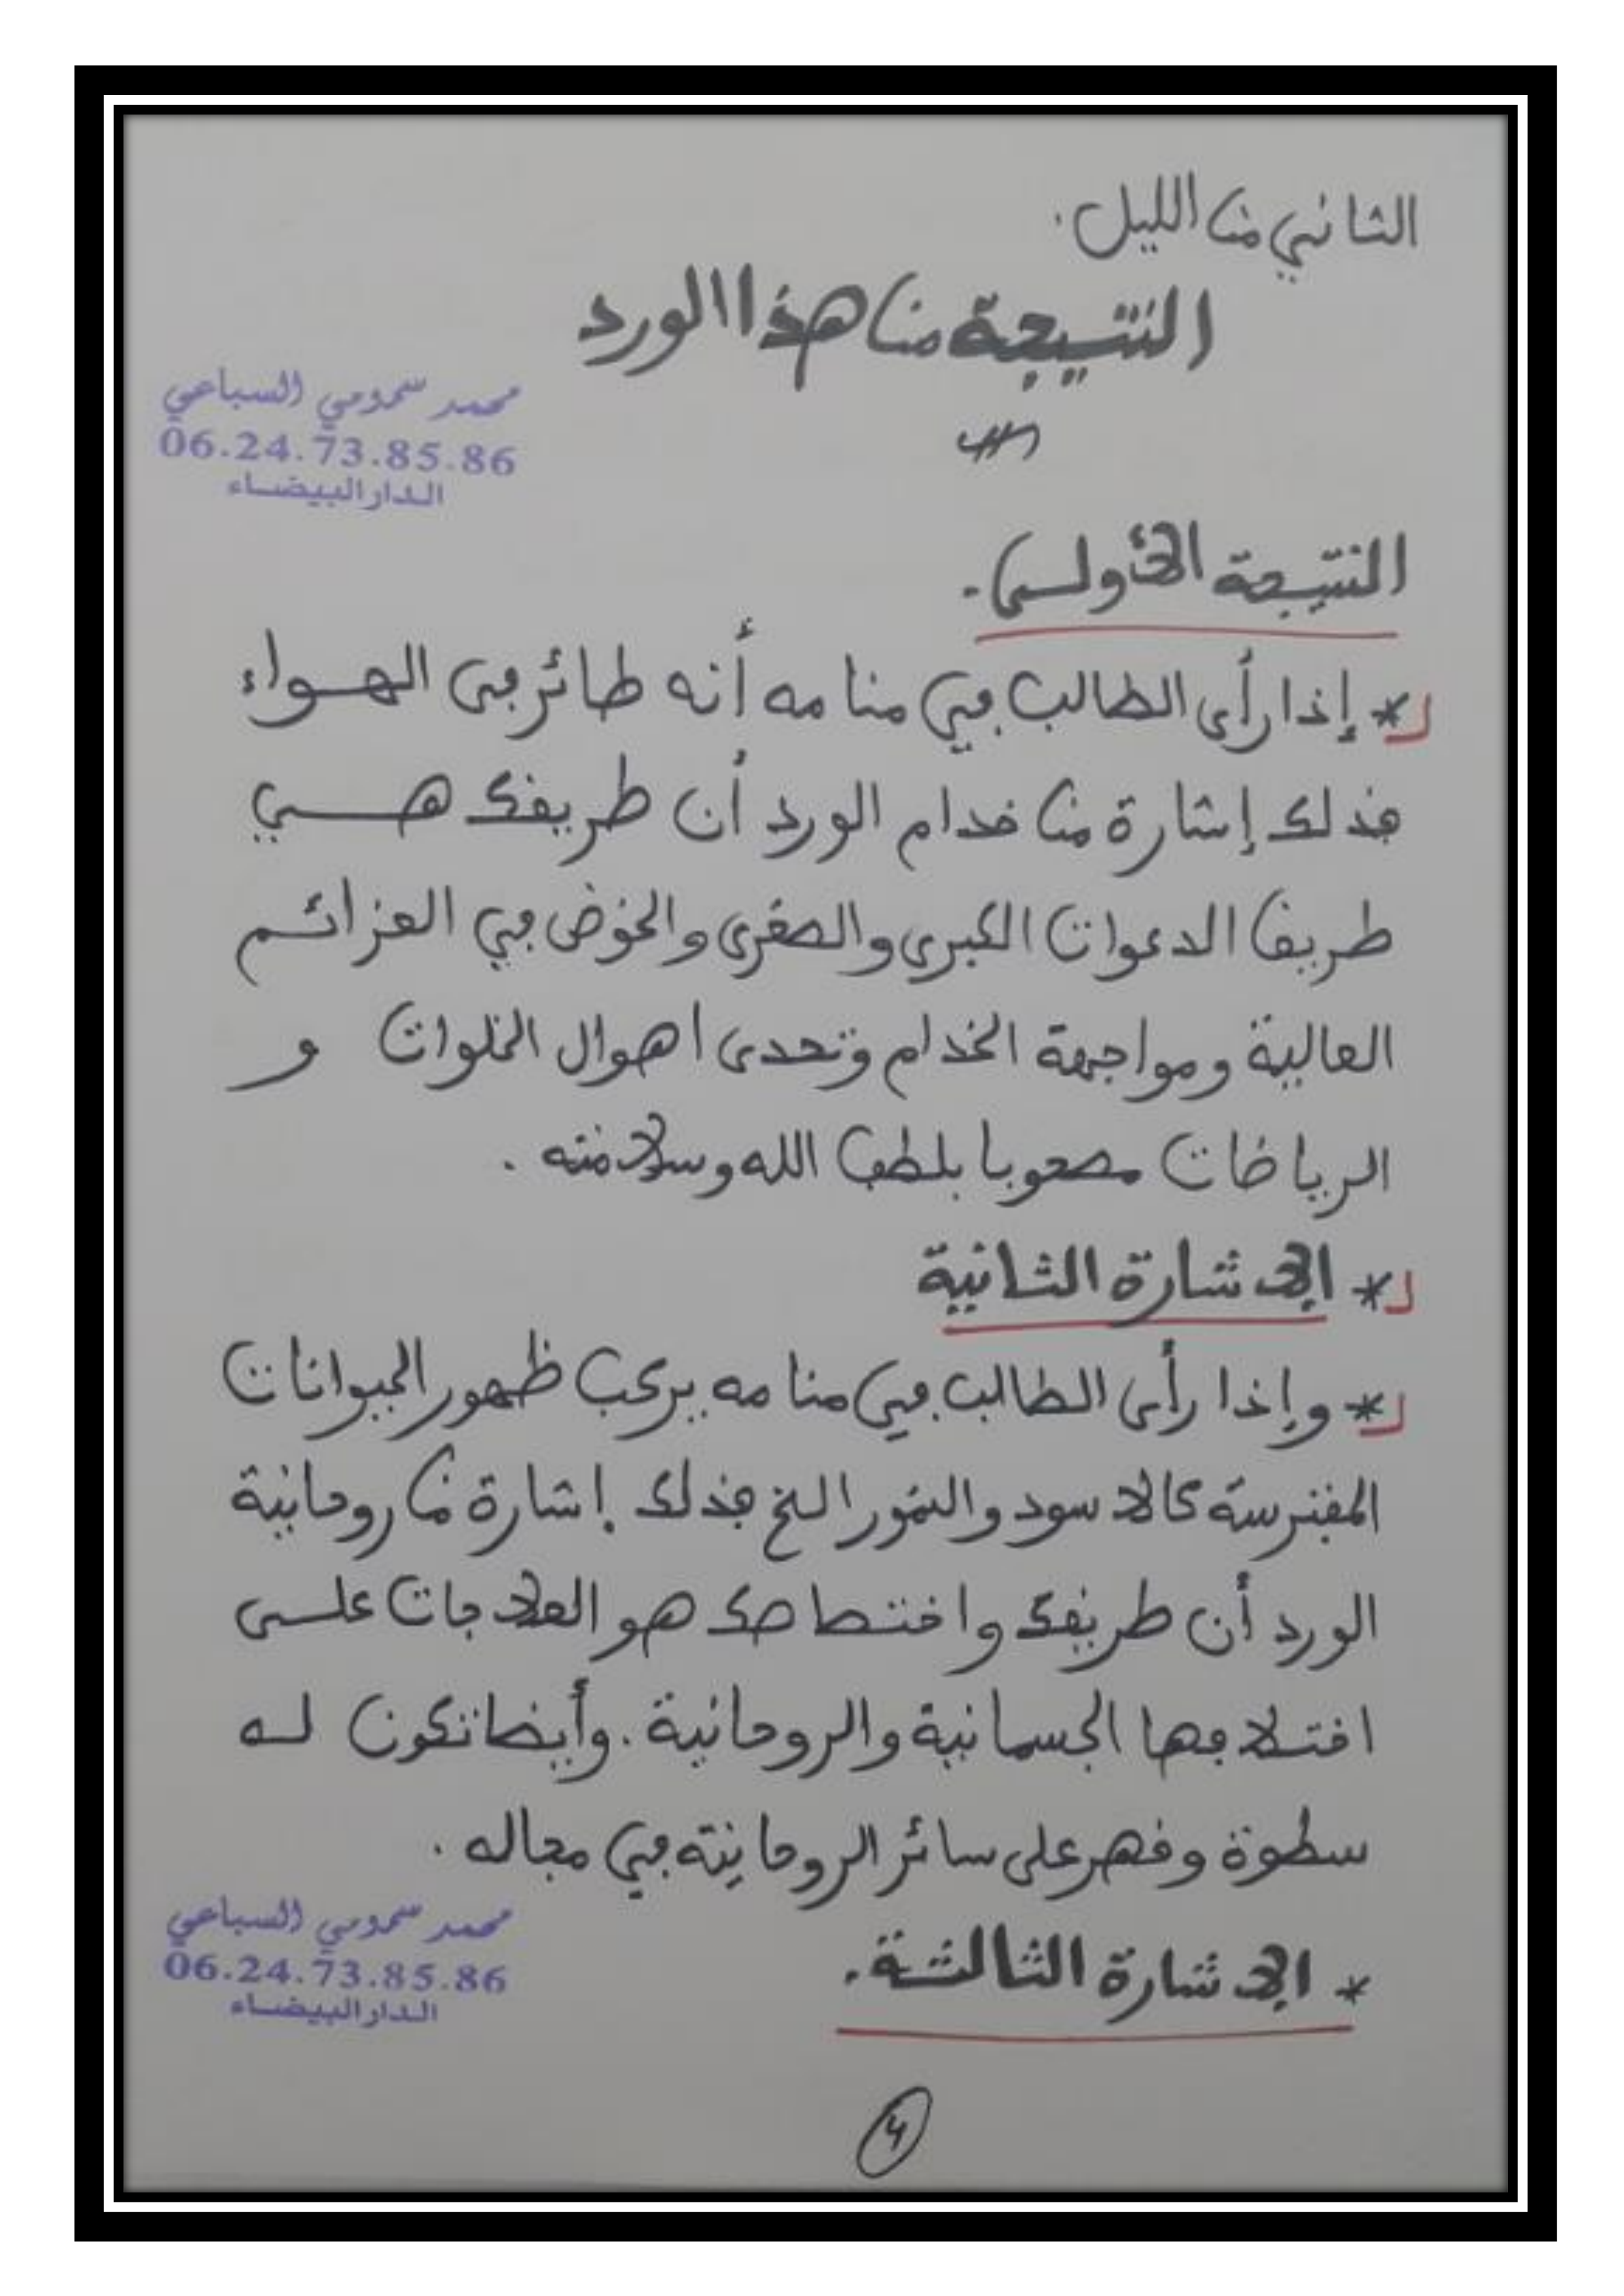 الثاني من الليل.
النتيجة من هذا الورد
محمد سموحي السباعي
06.24.73.85.86
الدار البيضاء
النتيجة الأولى.
* إذا رأى الطالب في منامه أنه طائر في الهواء
فذلك إشارة من خدام الورد أن طريقك هي
طريق الدعوات الكبرى والصغرى والخوض في العزائم
العالية ومواجهة الخدام وتحدى اهوال الخلوات و
الرياضات مصحوبا بلطف الله وسلامته.
* الإشارة الثانية
* وإذا رأى الطالب في منامه يركب ظهور الحيوانات
المفترسة كالاسود والنمور الخ فذلك إشارة من روحانية
الورد أن طريقك واختصاصك هو العلاجات على
اختلافها الجسمانية والروحانية. وأيضا تكون له
سطوة وقهر على سائر الروحانية في مجاله.
محمد سموحي السباعي
06.24.73.85.86
الدار البيضاء
* الإشارة الثالثة.
4